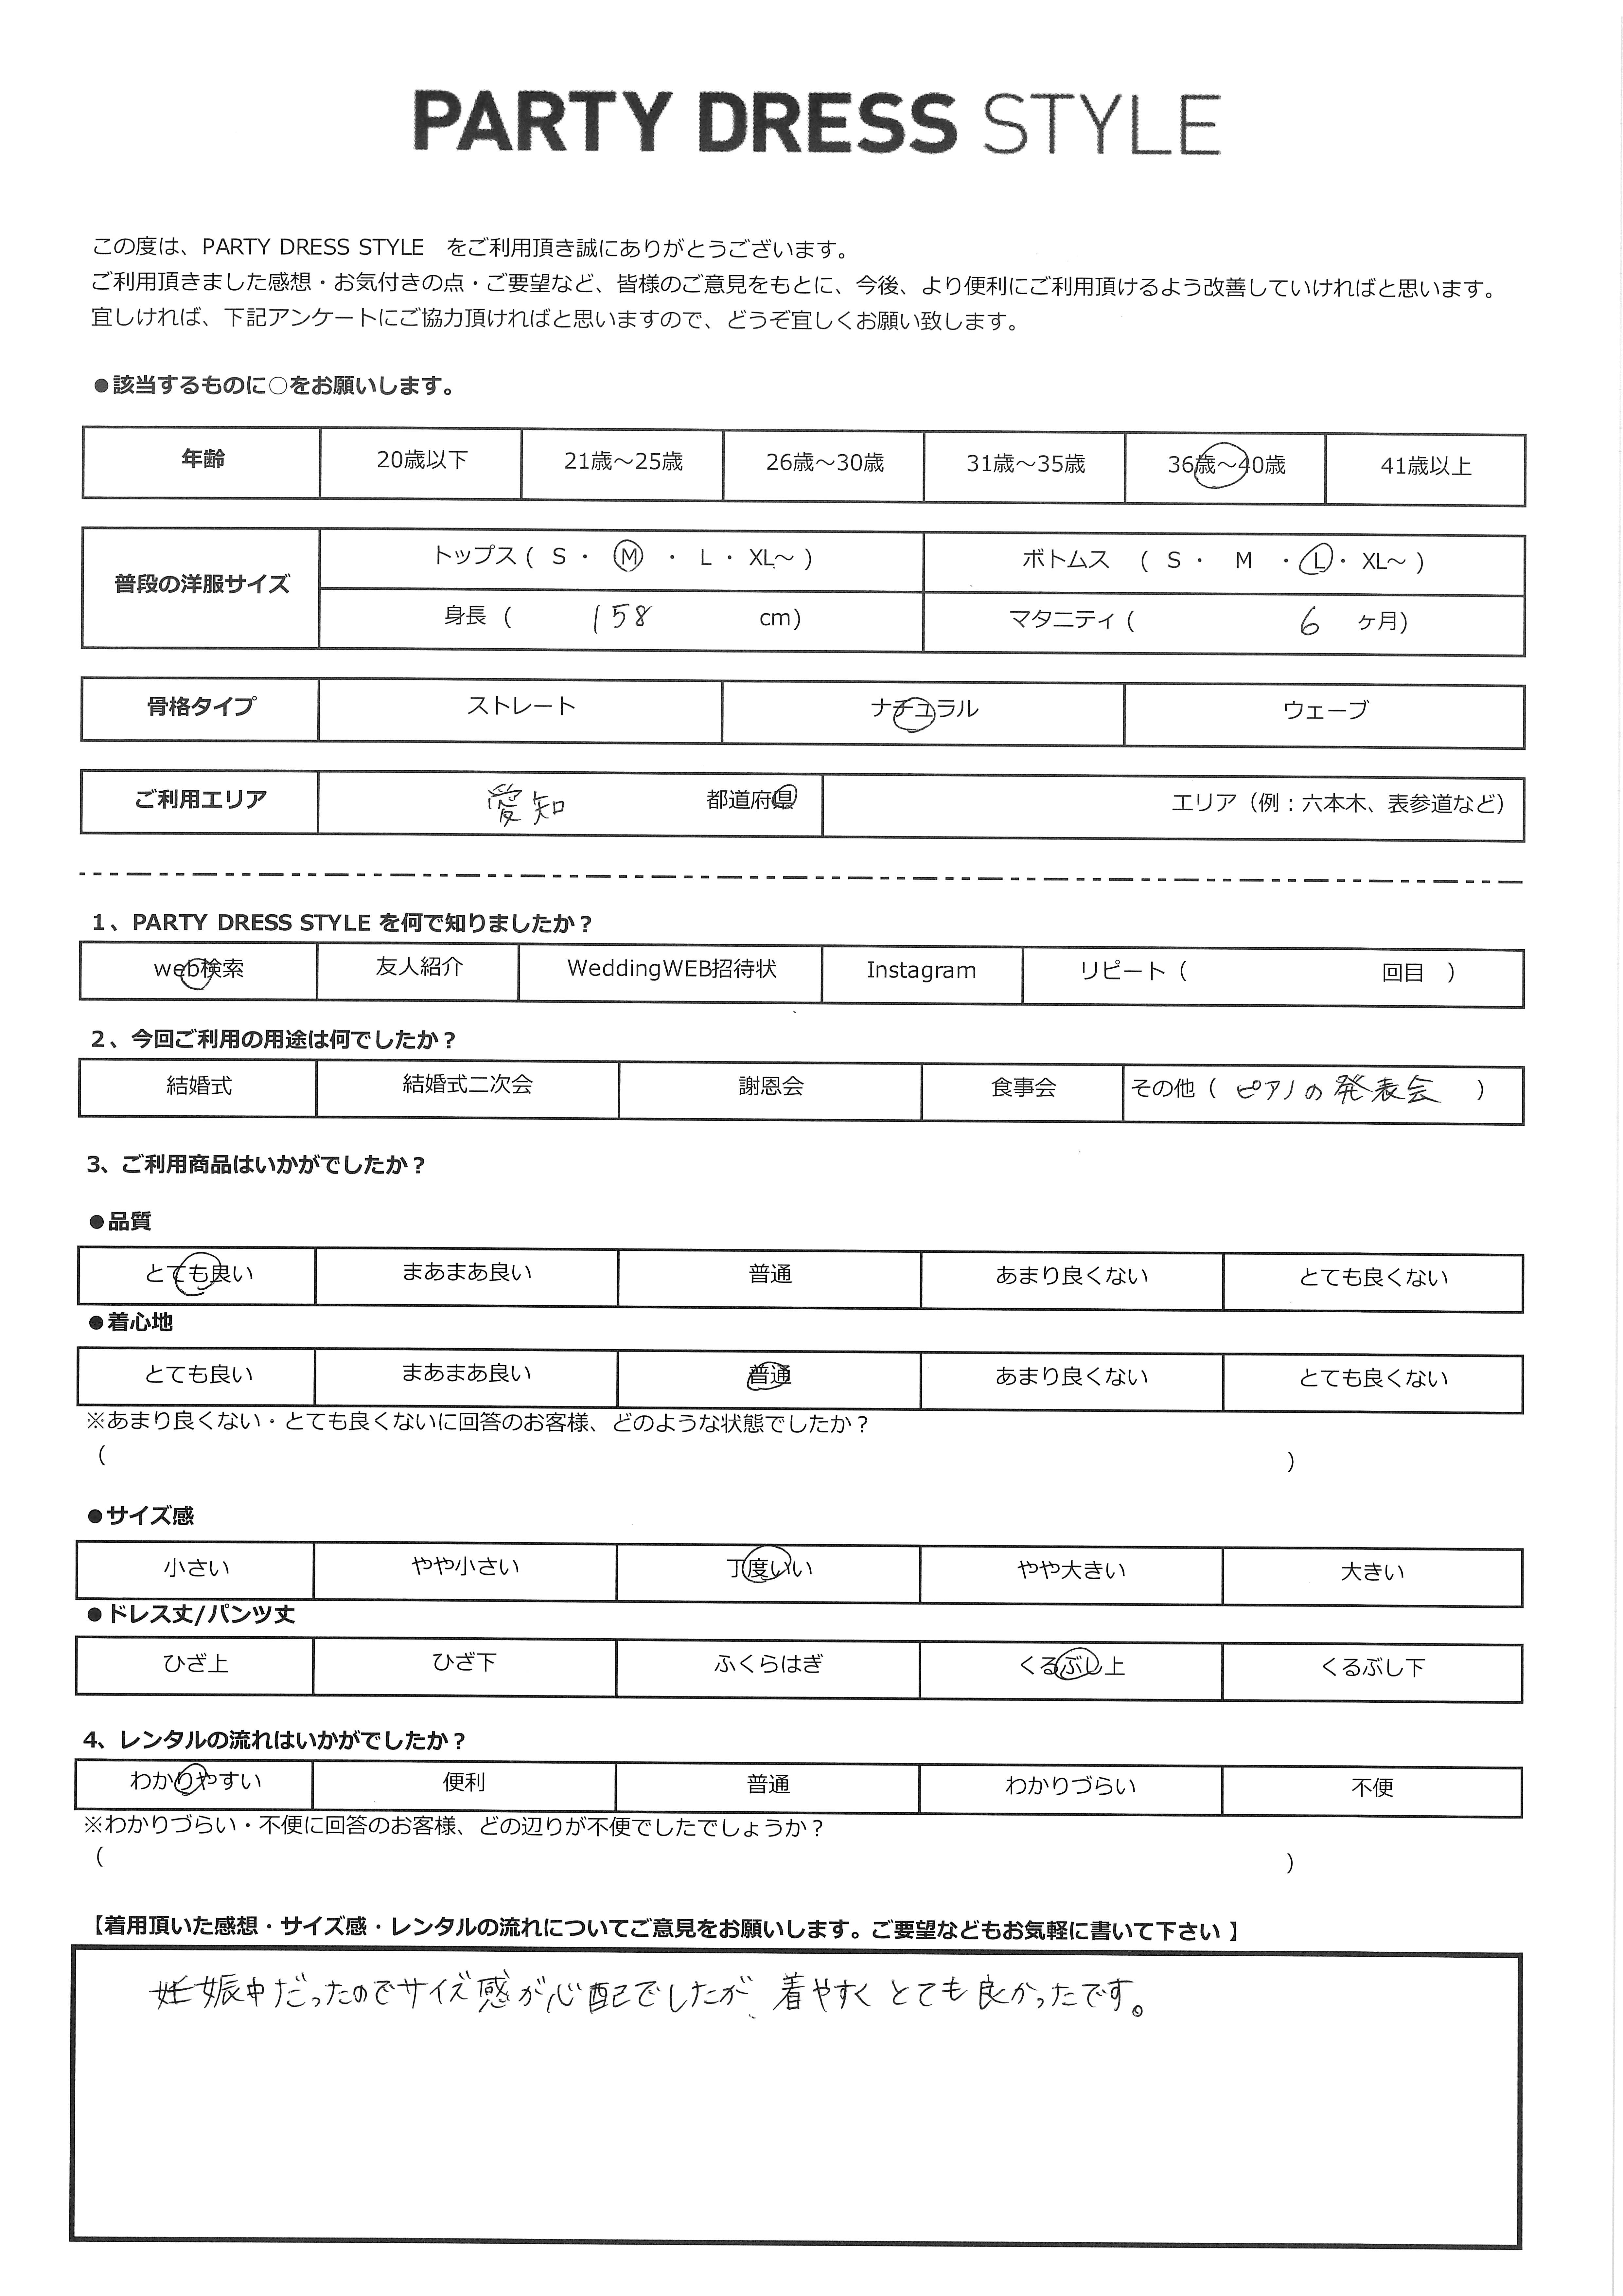 PARTY DRESS STYLE
この度は、PARTY DRESS STYLE をご利用頂き誠にありがとうございます。
ご利用頂きました感想・お気付きの点・ご要望など、皆様のご意見をもとに、今後、より便利にご利用頂けるよう改善していければと思います。
宜しければ、下記アンケートにご協力頂ければと思いますので、どうぞ宜しくお願い致します。
●該当するものに○をお願いします。
年齢 20歳以下 21歳～25歳 26歳～30歳 31歳～35歳 36歳～40歳 41歳以上
普段の洋服サイズ
トップス ( S ・ M ・ L ・ XL～ ) ボトムス ( S ・ M ・ L ・ XL～ )
身長 ( 158 cm) マタニティ ( 6 ヶ月)
骨格タイプ ストレート ナチュラル ウェーブ
ご利用エリア 愛知 都道府県 エリア（例：六本木、表参道など）
1、PARTY DRESS STYLE を何で知りましたか？
web検索 友人紹介 WeddingWEB招待状 Instagram リピート（ 回目 ）
2、今回ご利用の用途は何でしたか？
結婚式 結婚式二次会 謝恩会 食事会 その他（ ピアノの発表会 ）
3、ご利用商品はいかがでしたか？
●品質
とても良い まあまあ良い 普通 あまり良くない とても良くない
●着心地
とても良い まあまあ良い 普通 あまり良くない とても良くない
※あまり良くない・とても良くないに回答のお客様、どのような状態でしたか？
（ ）
●サイズ感
小さい やや小さい 丁度いい やや大きい 大きい
●ドレス丈/パンツ丈
ひざ上 ひざ下 ふくらはぎ くるぶし上 くるぶし下
4、レンタルの流れはいかがでしたか？
わかりやすい 便利 普通 わかりづらい 不便
※わかりづらい・不便に回答のお客様、どの辺りが不便でしたでしょうか？
（ ）
【着用頂いた感想・サイズ感・レンタルの流れについてご意見をお願いします。ご要望などもお気軽に書いて下さい 】
妊娠中だったのでサイズ感が心配でしたが、着やすくとても良かったです。